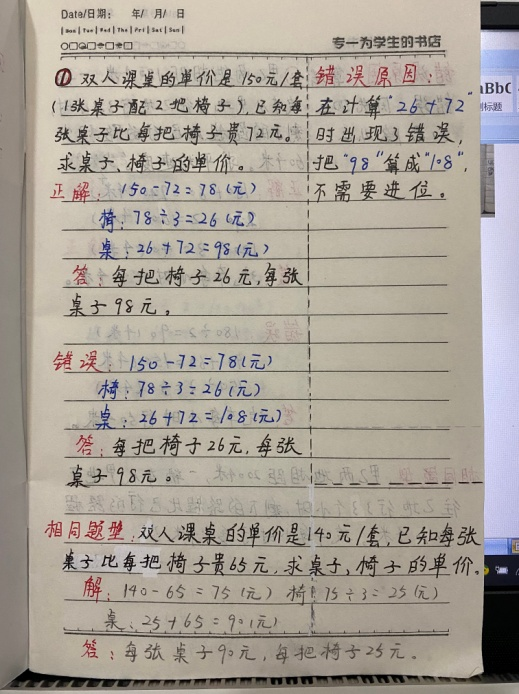 Date/日期: 年/ 月/ 日
Mon|Tue|Wed|Thu|Fri|Sat|Sun|
专一为学生的书店
① 双人课桌的单价是150元/套
(1张桌子配2把椅子),已知每
张桌子比每把椅子贵72元。
求桌子、椅子的单价。
正解: 150-72=78(元)
椅: 78÷3=26(元)
桌: 26+72=98(元)
答: 每把椅子26元,每张
桌子98元。
错误: 150-72=78(元)
椅: 78÷3=26(元)
桌: 26+72=108(元)
答: 每把椅子26元,每张
桌子98元。
错误原因:
在计算"26+72"
时出现了错误,
把"98"算成"108",
不需要进位。
相同题型: 双人课桌的单价是140元/套,已知每张
桌子比每把椅子贵65元,求桌子、椅子的单价。
解: 140-65=75(元) 椅: 75÷3=25(元)
桌: 25+65=90(元)
答: 每张桌子90元,每把椅子25元.
标题